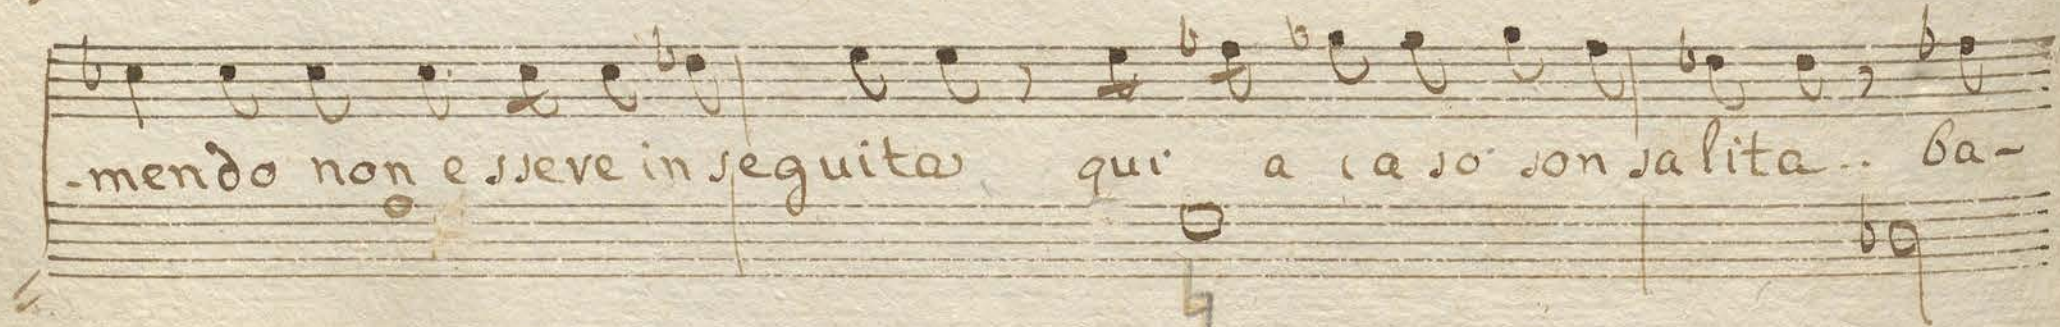 -mendo non essere inseguita qui a caso son salita.. ba-